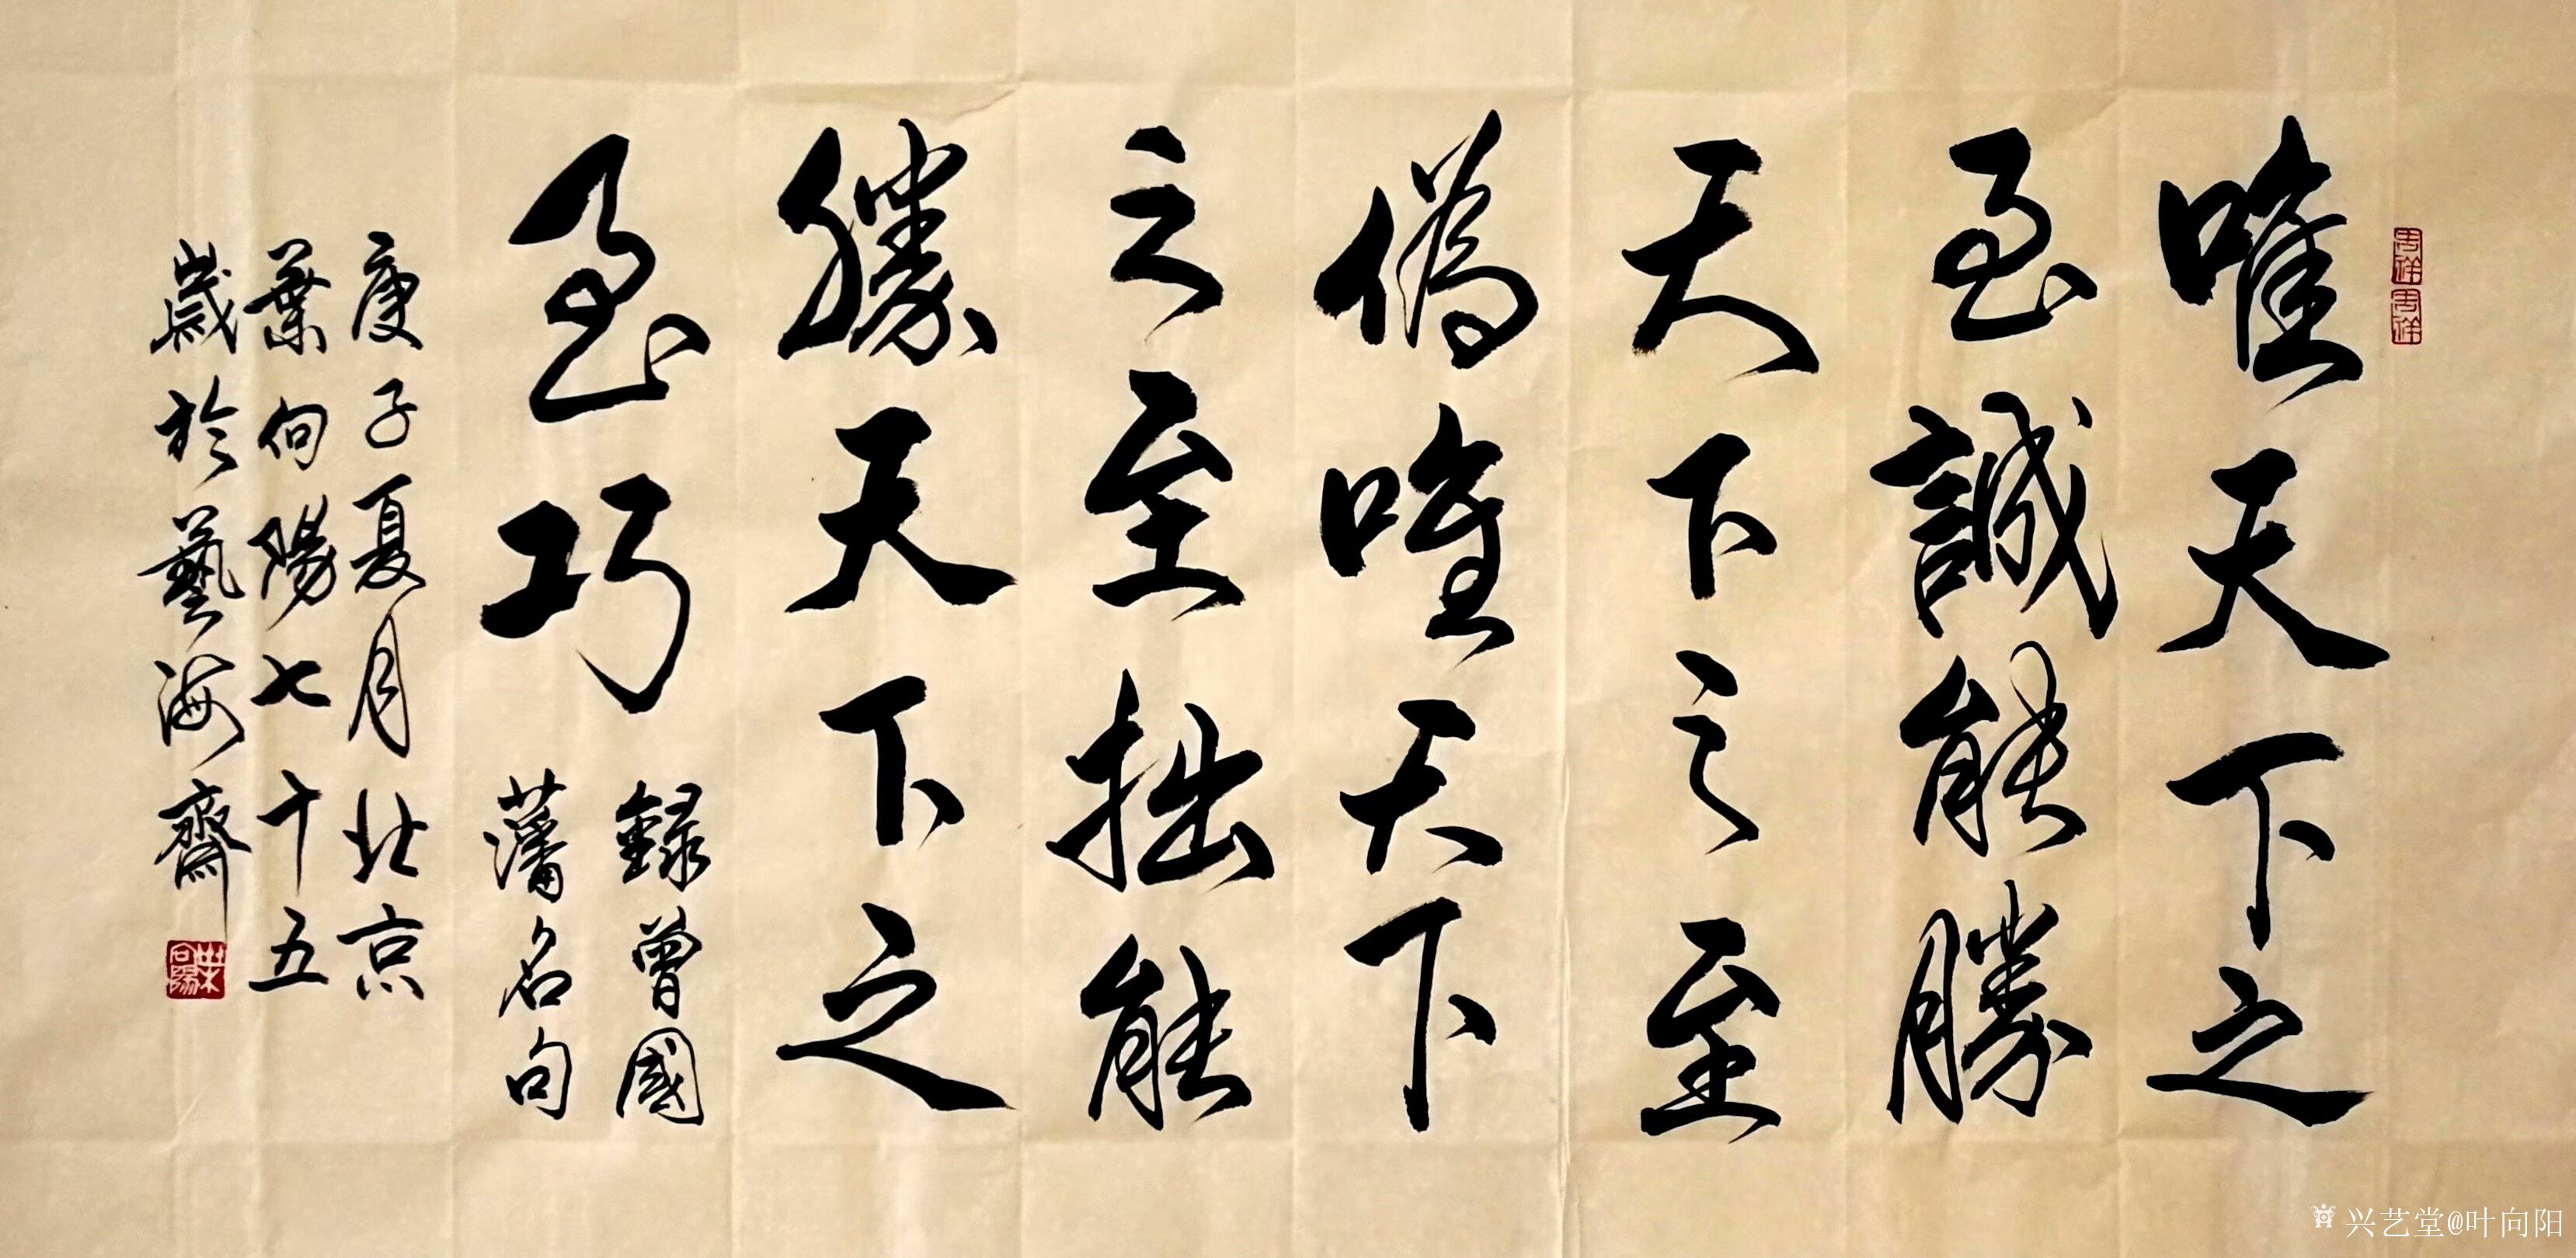 唯天下之
至誠能勝
天下之至
偽唯天下
之至拙能
勝天下之
至巧
錄曾國
藩名句
庚子夏月北京
葉向陽七十五
歲於藝海齋
葉向陽
兴艺堂@叶向阳